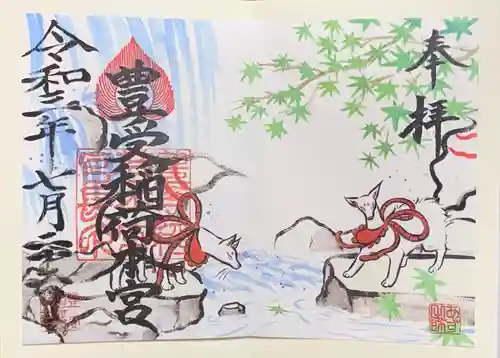 奉拝
豊受稲荷本宮
令和二年七月二十六日